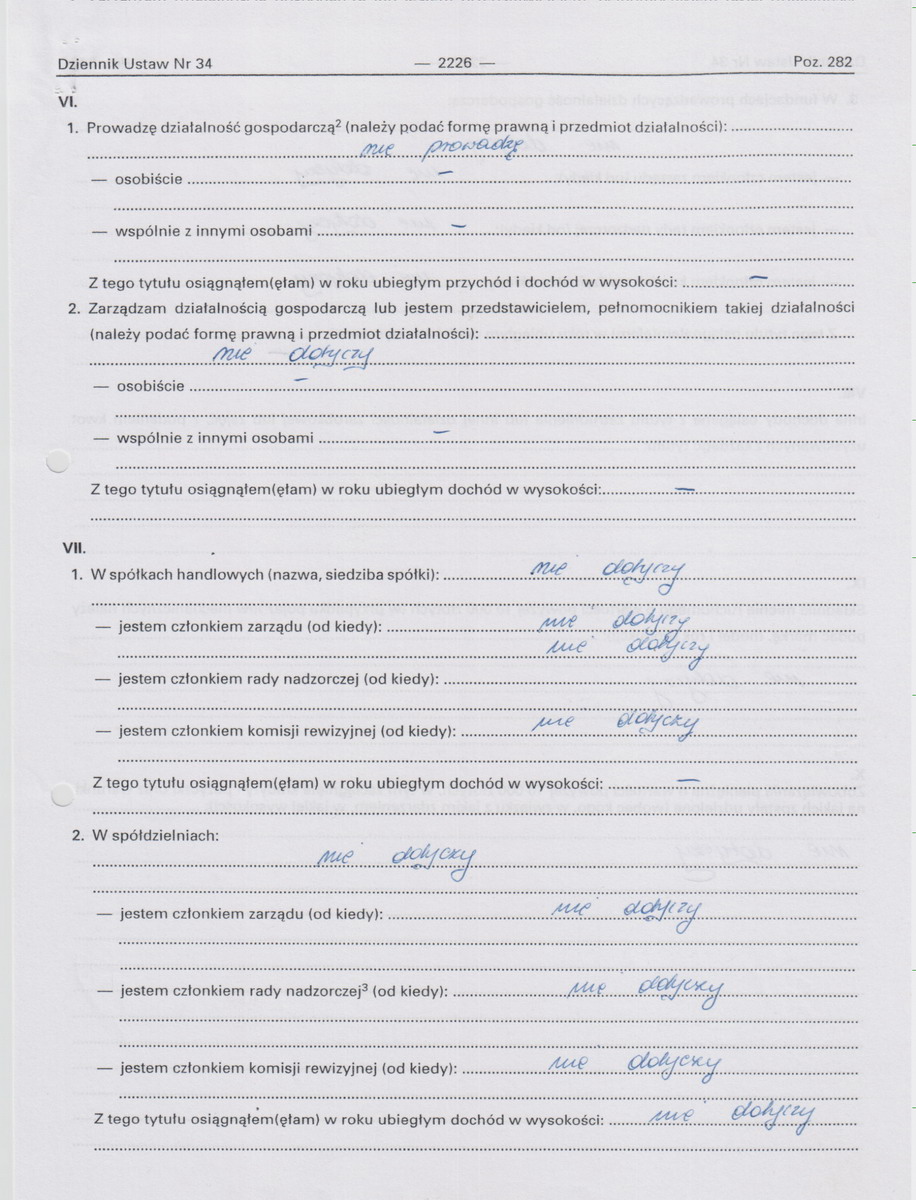 Dziennik Ustaw Nr 34 — 2226 — Poz. 282
VI.
1. Prowadzę działalność gospodarczą² (należy podać formę prawną i przedmiot działalności):
nie prowadzę
— osobiście —
— wspólnie z innymi osobami —
Z tego tytułu osiągnąłem(ęłam) w roku ubiegłym przychód i dochód w wysokości: —
2. Zarządzam działalnością gospodarczą lub jestem przedstawicielem, pełnomocnikiem takiej działalności
(należy podać formę prawną i przedmiot działalności):
nie dotyczy
— osobiście —
— wspólnie z innymi osobami —
Z tego tytułu osiągnąłem(ęłam) w roku ubiegłym dochód w wysokości: —
VII.
1. W spółkach handlowych (nazwa, siedziba spółki): nie dotyczy
— jestem członkiem zarządu (od kiedy): nie dotyczy
nie dotyczy
— jestem członkiem rady nadzorczej (od kiedy):
— jestem członkiem komisji rewizyjnej (od kiedy): nie dotyczy
Z tego tytułu osiągnąłem(ęłam) w roku ubiegłym dochód w wysokości: —
2. W spółdzielniach:
nie dotyczy
— jestem członkiem zarządu (od kiedy): nie dotyczy
— jestem członkiem rady nadzorczej³ (od kiedy): nie dotyczy
— jestem członkiem komisji rewizyjnej (od kiedy): nie dotyczy
Z tego tytułu osiągnąłem(ęłam) w roku ubiegłym dochód w wysokości: nie dotyczy